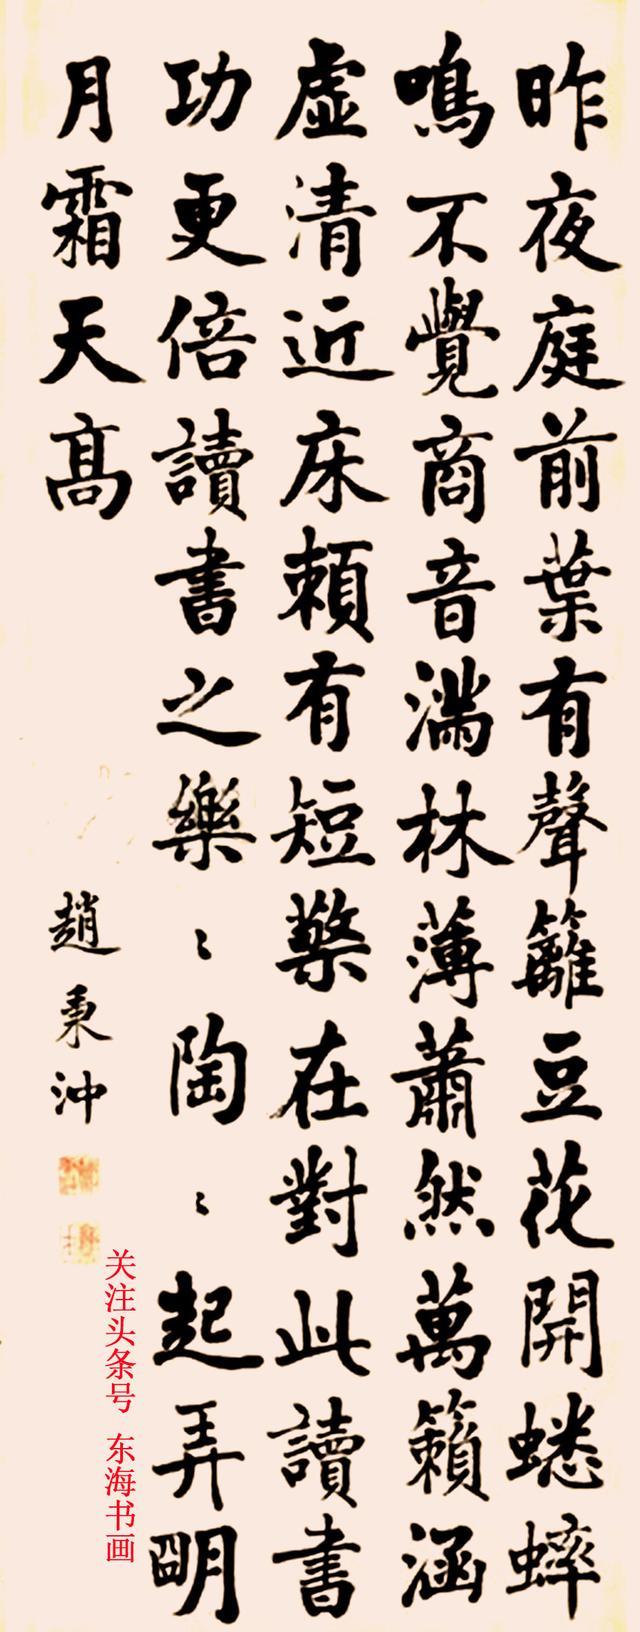 昨夜庭前葉有聲籬豆花開蟋蟀
鳴不覺商音滿林薄蕭然萬籟涵
虛清近床賴有短檠在對此讀書
功更倍讀書之樂〻陶〻起弄明
月霜天髙
趙秉沖
关注头条号 东海书画